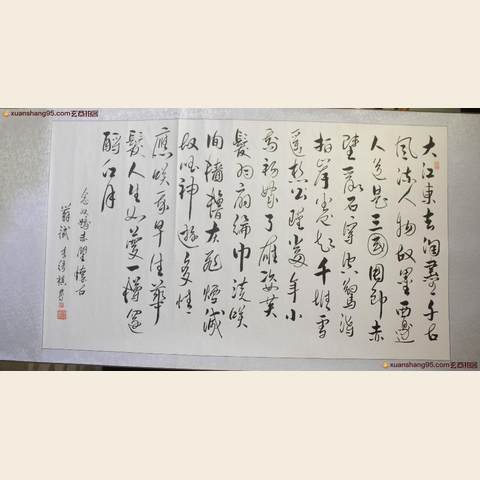 xuanshang95.com
大江東去淘盡千古
風流人物故壘西邊
人道是三國周郎赤
壁亂石穿空驚濤
拍岸卷起千堆雪
遙想公瑾當年小
喬初嫁了雄姿英
發羽扇綸巾談笑
間檣櫓灰飛煙滅
故國神遊多情
應笑我早生華
髮人生如夢一樽還
酹江月
念奴嬌赤壁懷古
蘇軾
xuanshang95.com